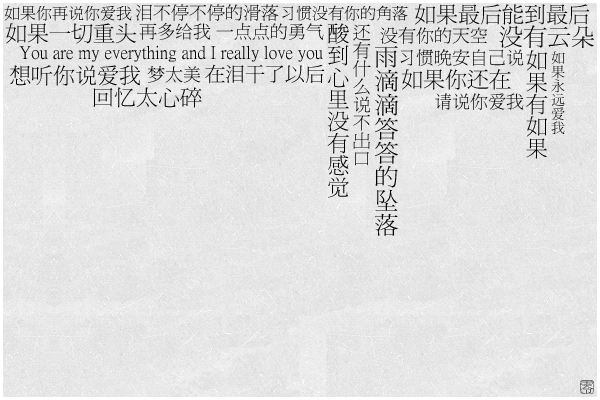 如果你再说你爱我 泪不停不停的滑落 习惯没有你的角落 如果最后能到最后
如果一切重头 再多给我 一点点的勇气
You are my everything and I really love you
想听你说爱我 梦太美 在泪干了以后
回忆太心碎
酸到心里没有感觉
还有什么说不出口
没有你的天空 没有云朵
雨滴滴答答的坠落
习惯晚安自己说
如果你还在
请说你爱我
如果有如果
如果永远爱我